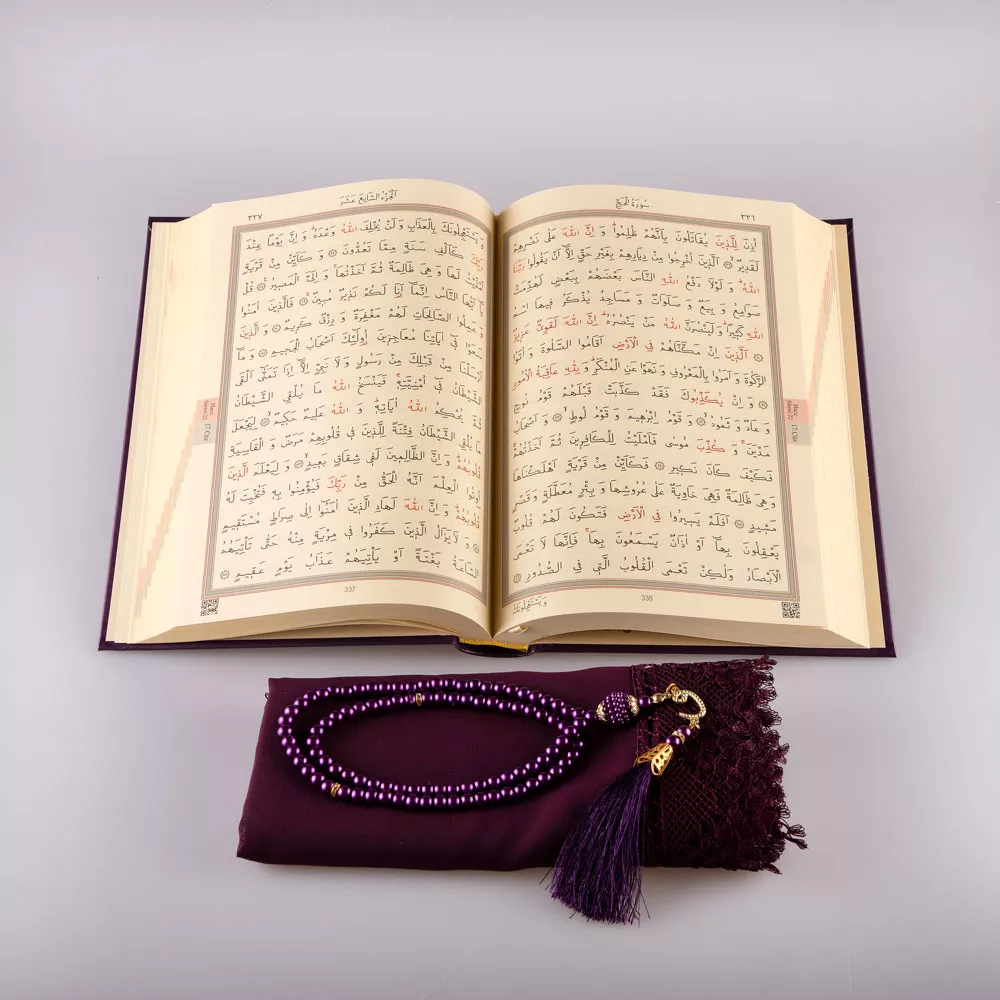 سُورَةُ الْحَجِّ
٣٣٦
اُذِنَ لِلَّذ۪ينَ يُقَاتَلُونَ بِاَنَّهُمْ ظُلِمُواۜ وَ اِنَّ اللّٰهَ عَلٰى نَصْرِهِمْ
لَقَد۪يرٌۙ ۞ اَلَّذ۪ينَ اُخْرِجُوا مِنْ دِيَارِهِمْ بِغَيْرِ حَقٍّ اِلَّٓا اَنْ يَقُولُوا رَبُّنَا
اللّٰهُۜ وَ لَوْلَا دَفْعُ اللّٰهِ النَّاسَ بَعْضَهُمْ بِبَعْضٍ لَهُدِّمَتْ
صَوَامِعُ وَ بِيَعٌ وَ صَلَوَاتٌ وَ مَسَاجِدُ يُذْكَرُ ف۪يهَا اسْمُ
اللّٰهِ كَث۪يرًاۜ وَ لَيَنْصُرَنَّ اللّٰهُ مَنْ يَنْصُرُهُۜ اِنَّ اللّٰهَ لَقَوِيٌّ عَز۪يزٌ
۞ اَلَّذ۪ينَ اِنْ مَكَّنَّاهُمْ فِي الْاَرْضِ اَقَامُوا الصَّلٰوةَ وَ اٰتَوُا
الزَّكٰوةَ وَ اَمَرُوا بِالْمَعْرُوفِ وَ نَهَوْا عَنِ الْمُنْكَرِۜ وَ لِلّٰهِ عَاقِبَةُ الْاُمُورِ
۞ وَ اِنْ يُكَذِّبُوكَ فَقَدْ كَذَّبَتْ قَبْلَهُمْ قَوْمُ نُوحٍ
وَ عَادٌ وَ ثَمُودُۙ ۞ وَ قَوْمُ اِبْرٰه۪يمَ وَ قَوْمُ لُوطٍۙ ۞ وَ اَصْحَابُ
مَدْيَنَۚ وَ كُذِّبَ مُوسٰى فَاَمْلَيْتُ لِلْكَافِر۪ينَ ثُمَّ اَخَذْتُهُمْۚ
فَكَيْفَ كَانَ نَك۪يرِ ۞ فَكَاَيِّنْ مِنْ قَرْيَةٍ اَهْلَكْنَاهَا
وَ هِيَ ظَالِمَةٌ فَهِيَ خَاوِيَةٌ عَلٰى عُرُوشِهَا وَ بِئْرٍ مُعَطَّلَةٍ وَ قَصْرٍ
مَش۪يدٍ ۞ اَفَلَمْ يَس۪يرُوا فِي الْاَرْضِ فَتَكُونَ لَهُمْ قُلُوبٌ
يَعْقِلُونَ بِهَٓا اَوْ اٰذَانٌ يَسْمَعُونَ بِهَاۚ فَاِنَّهَا لَا تَعْمَى
الْاَبْصَارُ وَ لٰكِنْ تَعْمَى الْقُلُوبُ الَّت۪ي فِي الصُّدُورِ ۞
وَيَسْتَعْجِلُونَكَ
336
Hac
Sûresi 22
17. Cüz
اَلْجُزْءُ السَّابِعَ عَشَرَ
٣٣٧
وَ يَسْتَعْجِلُونَكَ بِالْعَذَابِ وَ لَنْ يُخْلِفَ اللّٰهُ وَعْدَهُۜ وَ اِنَّ يَوْمًا عِنْدَ
رَبِّكَ كَاَلْفِ سَنَةٍ مِمَّا تَعُدُّونَ ۞ وَ كَاَيِّنْ مِنْ قَرْيَةٍ
اَمْلَيْتُ لَهَا وَ هِيَ ظَالِمَةٌ ثُمَّ اَخَذْتُهَاۚ وَ اِلَيَّ الْمَص۪يرُ۟ ۞ قُلْ
يَٓا اَيُّهَا النَّاسُ اِنَّمَٓا اَنَا لَكُمْ نَذ۪يرٌ مُب۪ينٌۚ ۞ فَالَّذ۪ينَ اٰمَنُوا
وَ عَمِلُوا الصَّالِحَاتِ لَهُمْ مَغْفِرَةٌ وَ رِزْقٌ كَر۪يمٌ ۞ وَ الَّذ۪ينَ
سَعَوْا ف۪ٓي اٰيَاتِنَا مُعَاجِز۪ينَ اُو۬لٰٓئِكَ اَصْحَابُ الْجَح۪يمِ ۞ وَ مَٓا
اَرْسَلْنَا مِنْ قَبْلِكَ مِنْ رَسُولٍ وَ لَا نَبِيٍّ اِلَّٓا اِذَا تَمَنّٰىٓ اَلْقَى
الشَّيْطَانُ ف۪ٓي اُمْنِيَّتِه۪ۚ فَيَنْسَخُ اللّٰهُ مَا يُلْقِي الشَّيْطَانُ
ثُمَّ يُحْكِمُ اللّٰهُ اٰيَاتِه۪ۜ وَ اللّٰهُ عَل۪يمٌ حَك۪يمٌۙ ۞ لِيَجْعَلَ
مَا يُلْقِي الشَّيْطَانُ فِتْنَةً لِلَّذ۪ينَ ف۪ي قُلُوبِهِمْ مَرَضٌ وَ الْقَاسِيَةِ
قُلُوبُهُمْۜ وَ اِنَّ الظَّالِم۪ينَ لَف۪ي شِقَاقٍ بَع۪يدٍۙ ۞ وَ لِيَعْلَمَ الَّذ۪ينَ
اُو۫تُوا الْعِلْمَ اَنَّهُ الْحَقُّ مِنْ رَبِّكَ فَيُؤْمِنُوا بِه۪ فَتُخْبِتَ لَهُ
قُلُوبُهُمْۜ وَ اِنَّ اللّٰهَ لَهَادِ الَّذ۪ينَ اٰمَنُٓوا اِلٰى صِرَاطٍ مُسْتَق۪يمٍ
۞ وَ لَا يَزَالُ الَّذ۪ينَ كَفَرُوا ف۪ي مِرْيَةٍ مِنْهُ حَتّٰى تَأْتِيَهُمُ
السَّاعَةُ بَغْتَةً اَوْ يَأْتِيَهُمْ عَذَابُ يَوْمٍ عَق۪يمٍ ۞
337
Hac
Sûresi 22
17. Cüz